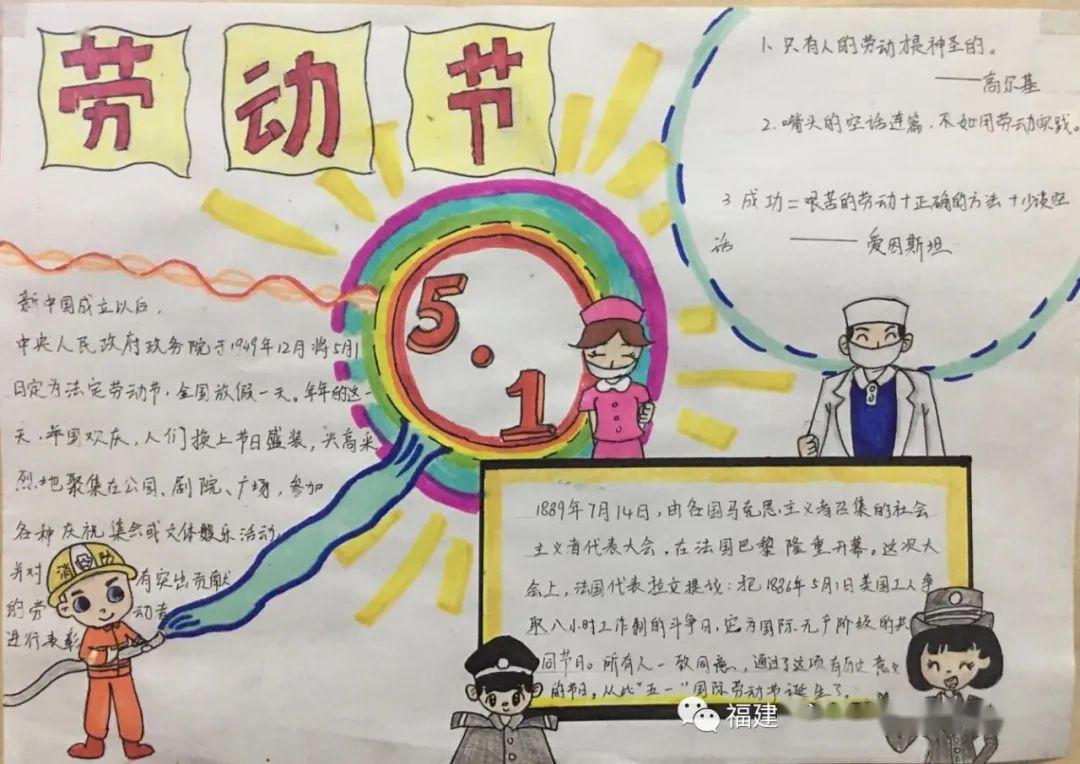 劳动节
1、只有人的劳动才是神圣的。
——高尔基
2、嘴头的空话连篇，不如用劳动实践。
3.成功=艰苦的劳动+正确的方法+少谈空
话 ——爱因斯坦
5.1
新中国成立以后，
中央人民政府政务院于1949年12月将5月1
日定为法定劳动节，全国放假一天。每年的这一
天，举国欢庆，人们换上节日盛装，兴高采
烈地聚集在公园、剧院、广场，参加
各种庆祝集会或文体娱乐活动，
并对有突出贡献
的劳动者
进行表彰
消防
1889年7月14日，由各国马克思主义者召集的社会
主义者代表大会，在法国巴黎隆重开幕。这次大
会上，法国代表拉文提议：把1886年5月1日美国工人争
取八小时工作制的斗争日，定为国际无产阶级的共
同节日。所有人一致同意，通过了这项有历史意义
的节日，从此“五一”国际劳动节诞生了。
福建